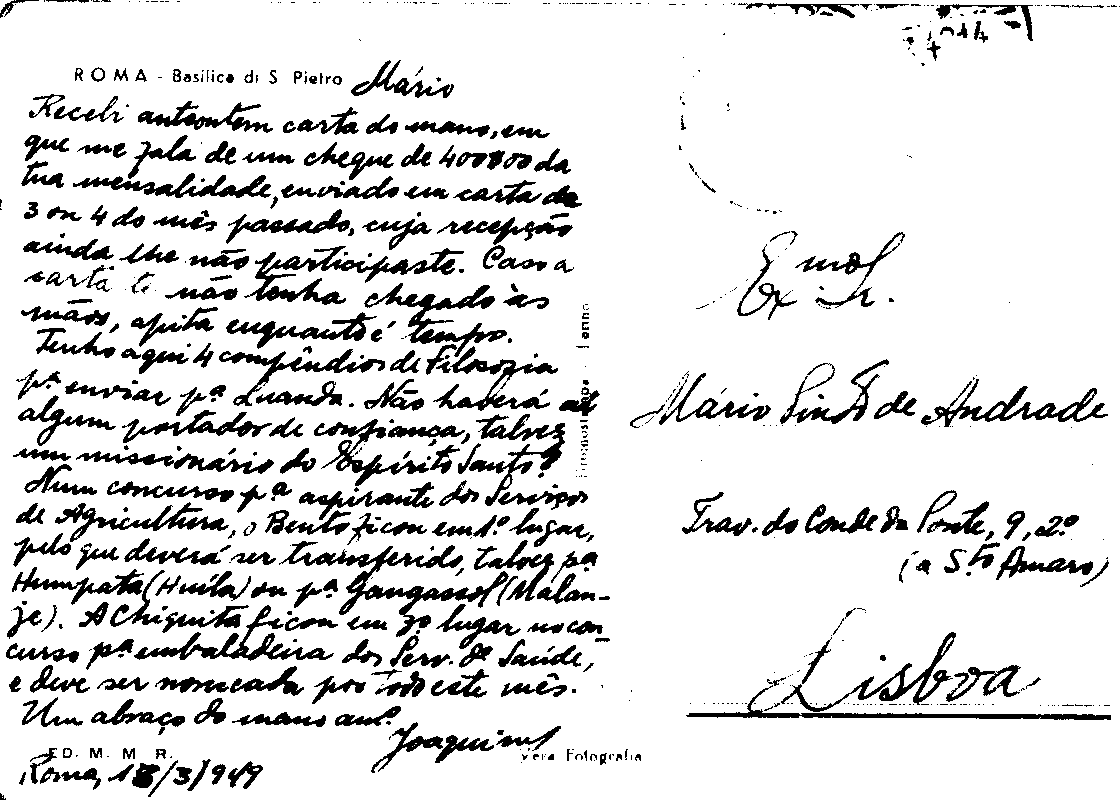 ROMA - Basilica di S. Pietro Mário
Recebi anteontem carta do mano, em
que me fala de um cheque de 400$00 da
tua mensalidade, enviado em carta de
3 ou 4 do mês passado, cuja recepção
ainda lhe não participaste. Caso a
carta te não tenha chegado às
mãos, apita enquanto é tempo.
Tenho aqui 4 compêndios de Filosofia
pª enviar pª Luanda. Não haverá aí
algum portador de confiança, talvez
um missionário do Espírito Santo?
Num concurso pª aspirante dos Serviços
de Agricultura, o Bento ficou em 1º lugar,
pelo que deverá ser transferido, talvez pª
Humpata (Huíla) ou pª (Malan-
je). A Chiquita ficou em 3º lugar no con
curso pª embaladeira dos Serv. de Saúde,
e deve ser nomeada por todo este mês.
Um abraço do mano amº
Joaquim
ED. M. M. R.
Vera Fotografia
Roma, /3/949
Exmº Sr.
Mário Pinto de Andrade
Trav. do Conde da Ponte, 9, 2º
(a Stº Amaro)
Lisboa